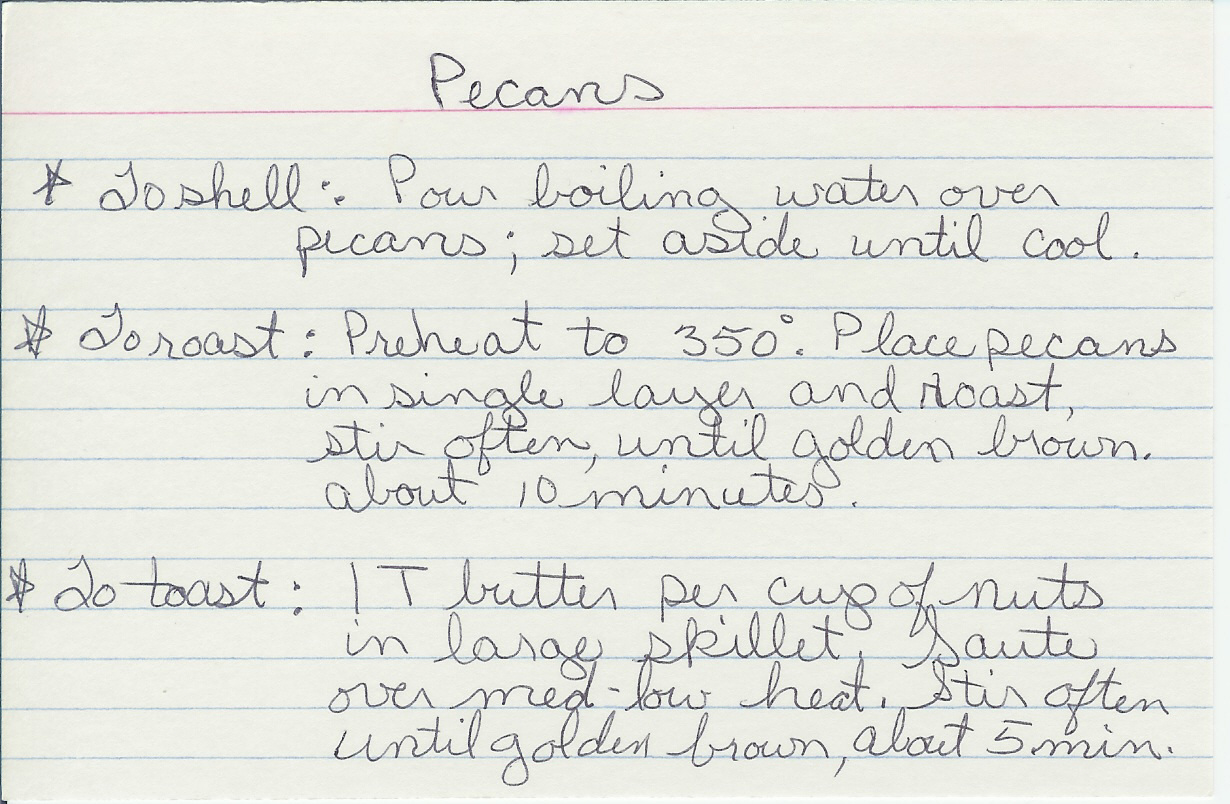 Pecans
* To shell: Pour boiling water over
pecans; set aside until cool.
* To roast: Preheat to 350°. Place pecans
in single layer and roast,
stir often, until golden brown.
about 10 minutes.
* To toast: 1 T butter per cup of nuts
in large skillet. Saute
over med-low heat. Stir often
until golden brown, about 5 min.